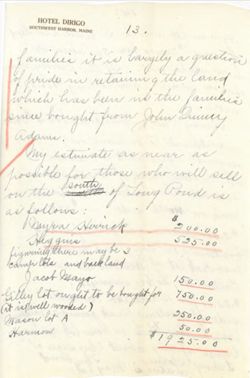 HOTEL DIRIGO
SOUTHWEST HARBOR, MAINE
13.
families it is largely a question
of pride in retaining the land
which has been in the families
since bought from John Quincy
Adams.
My estimate as near as
possible for those who will sell
on the south of Long Pond is
as follows:
Herrick $200.00
Higgins 525.00
figuring there may be 3
camp lots and back land
Jacob Mayo 150.00
Gilley lot ought to be bought for 750.00
(it is well wooded)
Mason lot A 250.00
Harmon 50.00
$1925.00